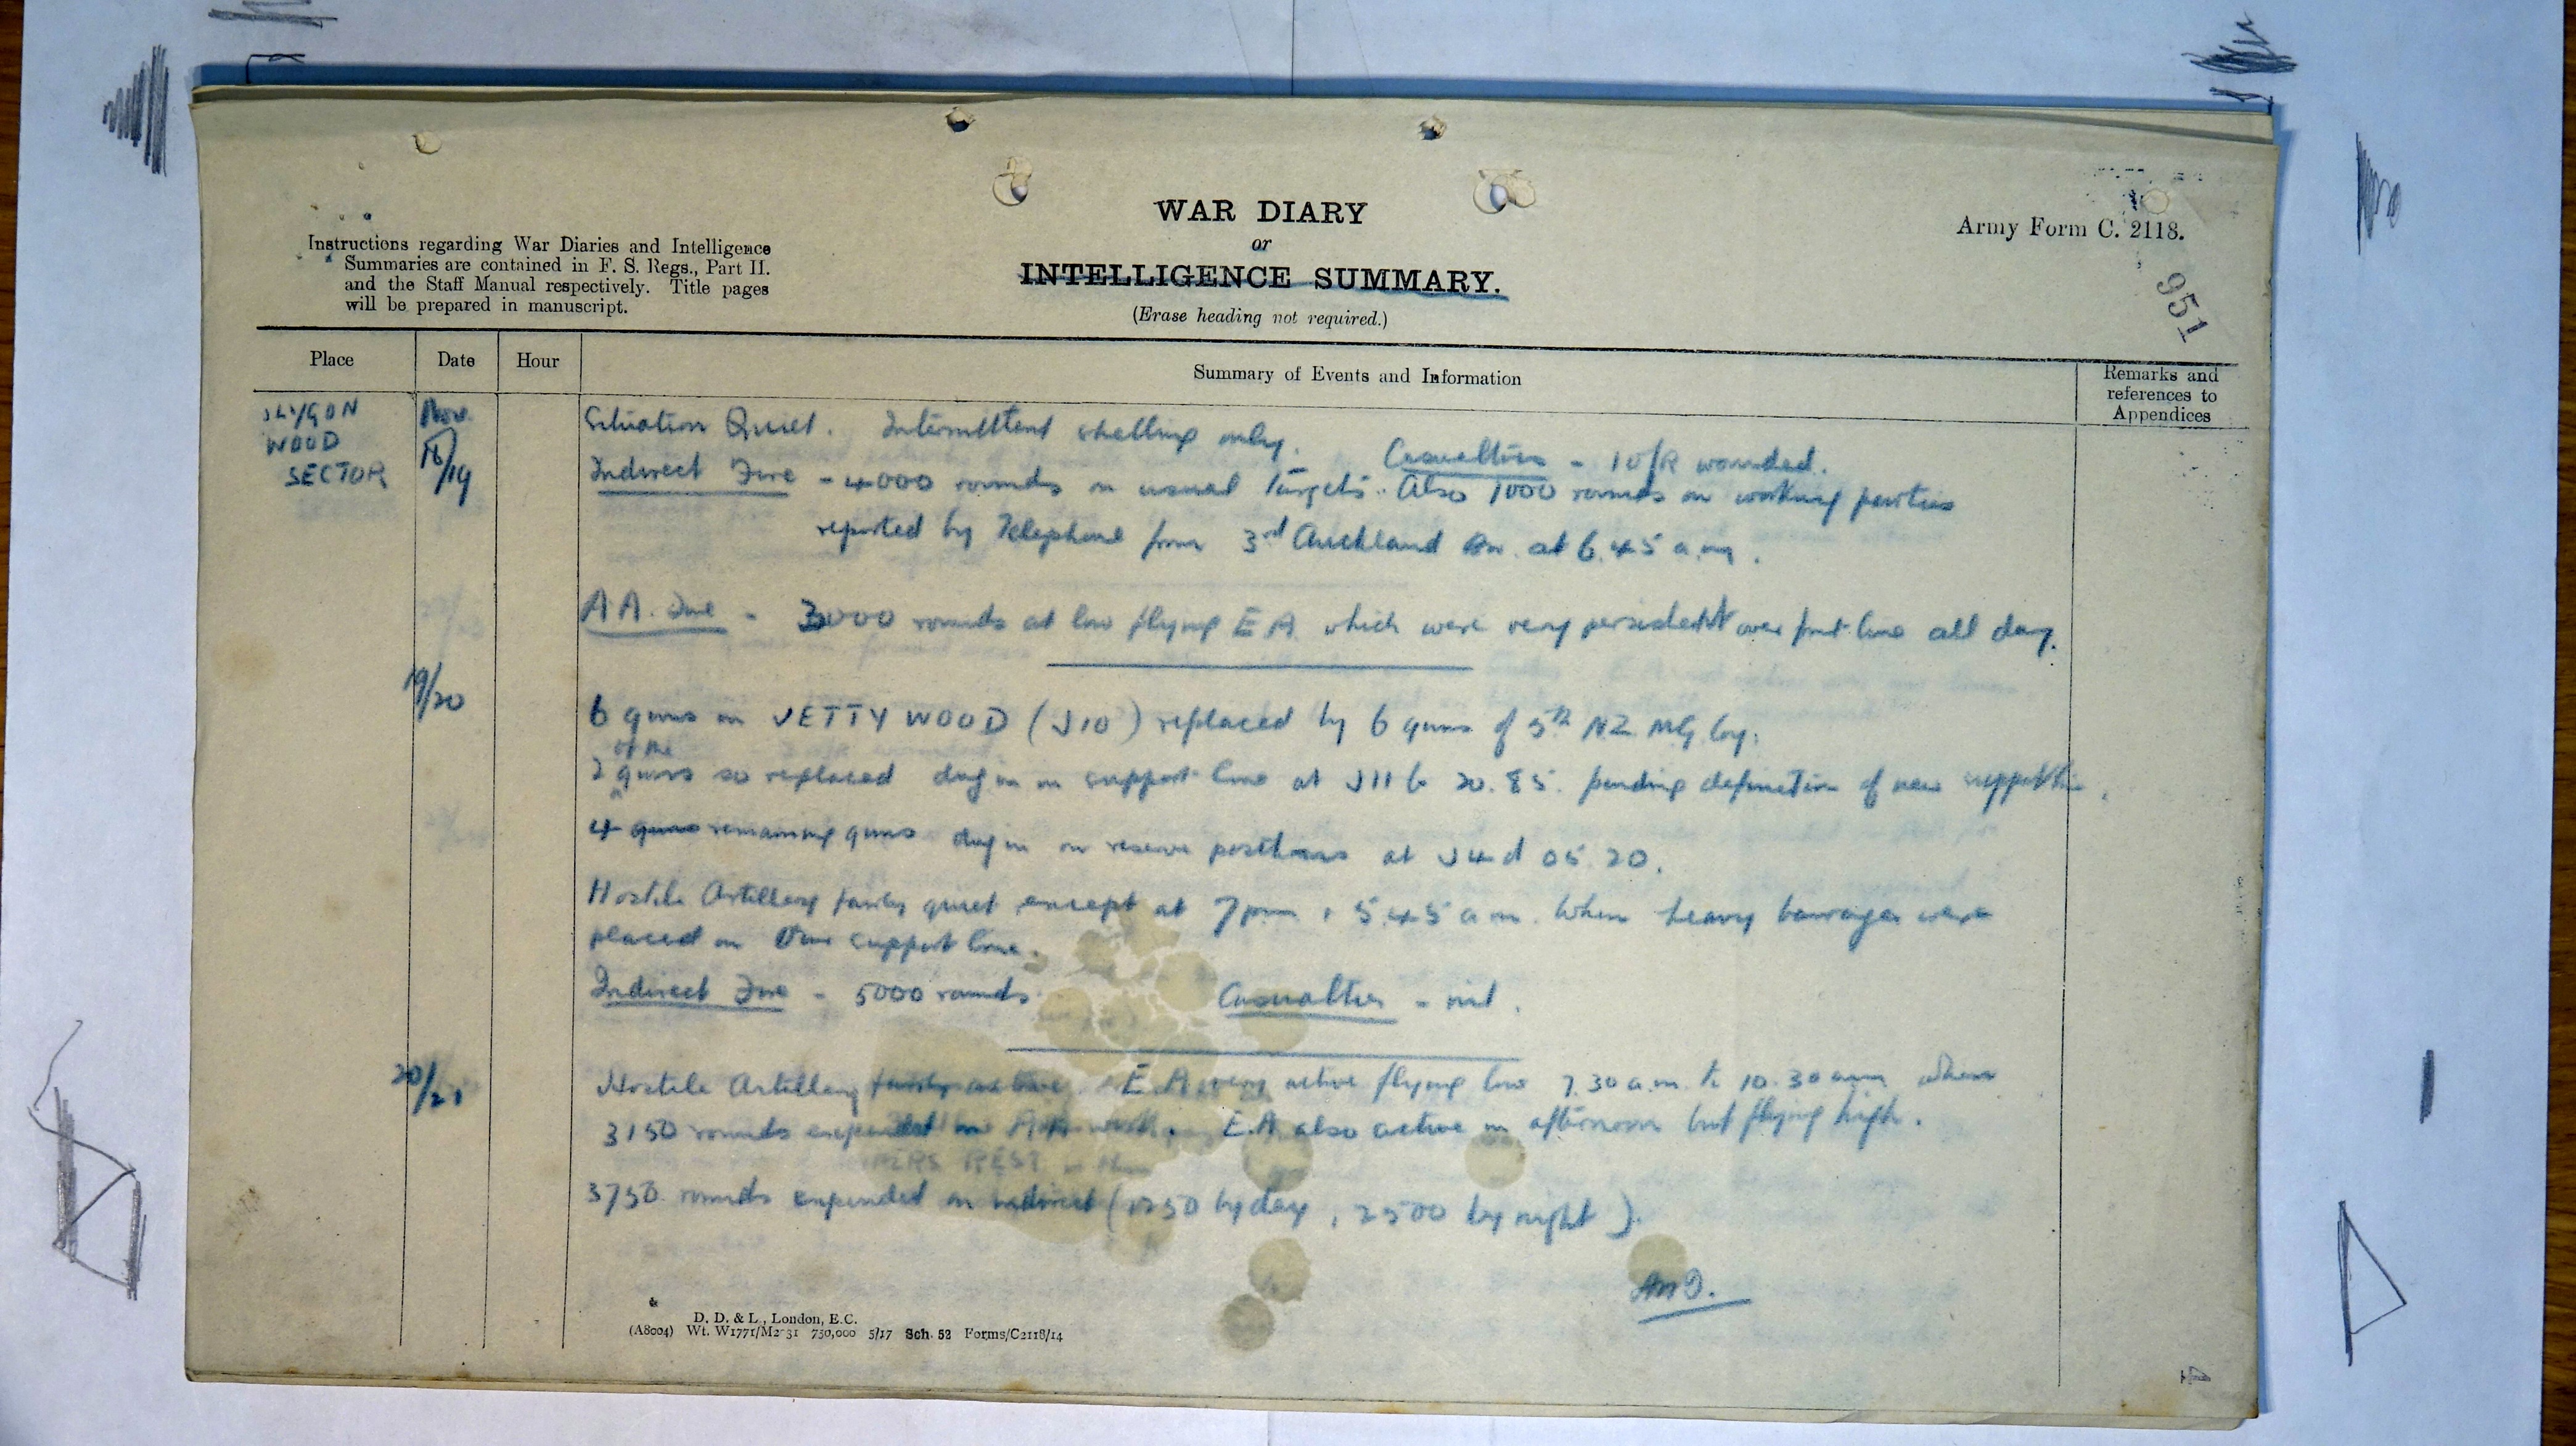 WAR DIARY
or
INTELLIGENCE SUMMARY.
(Erase heading not required.)
Instructions regarding War Diaries and Intelligence
Summaries are contained in F. S. Regs., Part II.
and the Staff Manual respectively. Title pages
will be prepared in manuscript.
Army Form C. 2118.
951
Place Date Hour Summary of Events and Information Remarks and references to Appendices
WOOD
SECTOR
Nov.
18/19
Situation Quiet. Intermittent shelling only. Casualties - 1 O/R wounded.
Indirect Fire - 4000 rounds on usual targets. Also 1000 rounds on working parties
reported by Telephone from 3rd Auckland Bn. at 6.45 a.m.
A A. Fire - 3000 rounds at low flying E A. which were very persistent over front line all day.
19/20
6 guns in JETTY WOOD (J10) replaced by 6 guns of 5th NZ MG Coy.
2 of the guns so replaced dug in in support line at J11 b 20.85. pending definition of new support line.
4 guns remaining guns dug in in reserve positions at J4d 05.20.
Hostile Artillery fairly quiet except at 7pm & 5.45 a.m. when heavy barrages were
placed on our support line.
Indirect Fire - 5000 rounds. Casualties - nil.
20/21
Hostile Artillery fairly active. E.A. very active flying low 7.30 a.m. to 10.30 am when
3150 rounds expended in AA work. E.A. also active in afternoon but flying high.
3750 rounds expended on indirect (1250 by day, 2500 by night).
D. D. & L., London, E.C.
(A8004) Wt. W1771/M2 31 750,000 5/17 Sch. 52 Forms/C2118/14
4